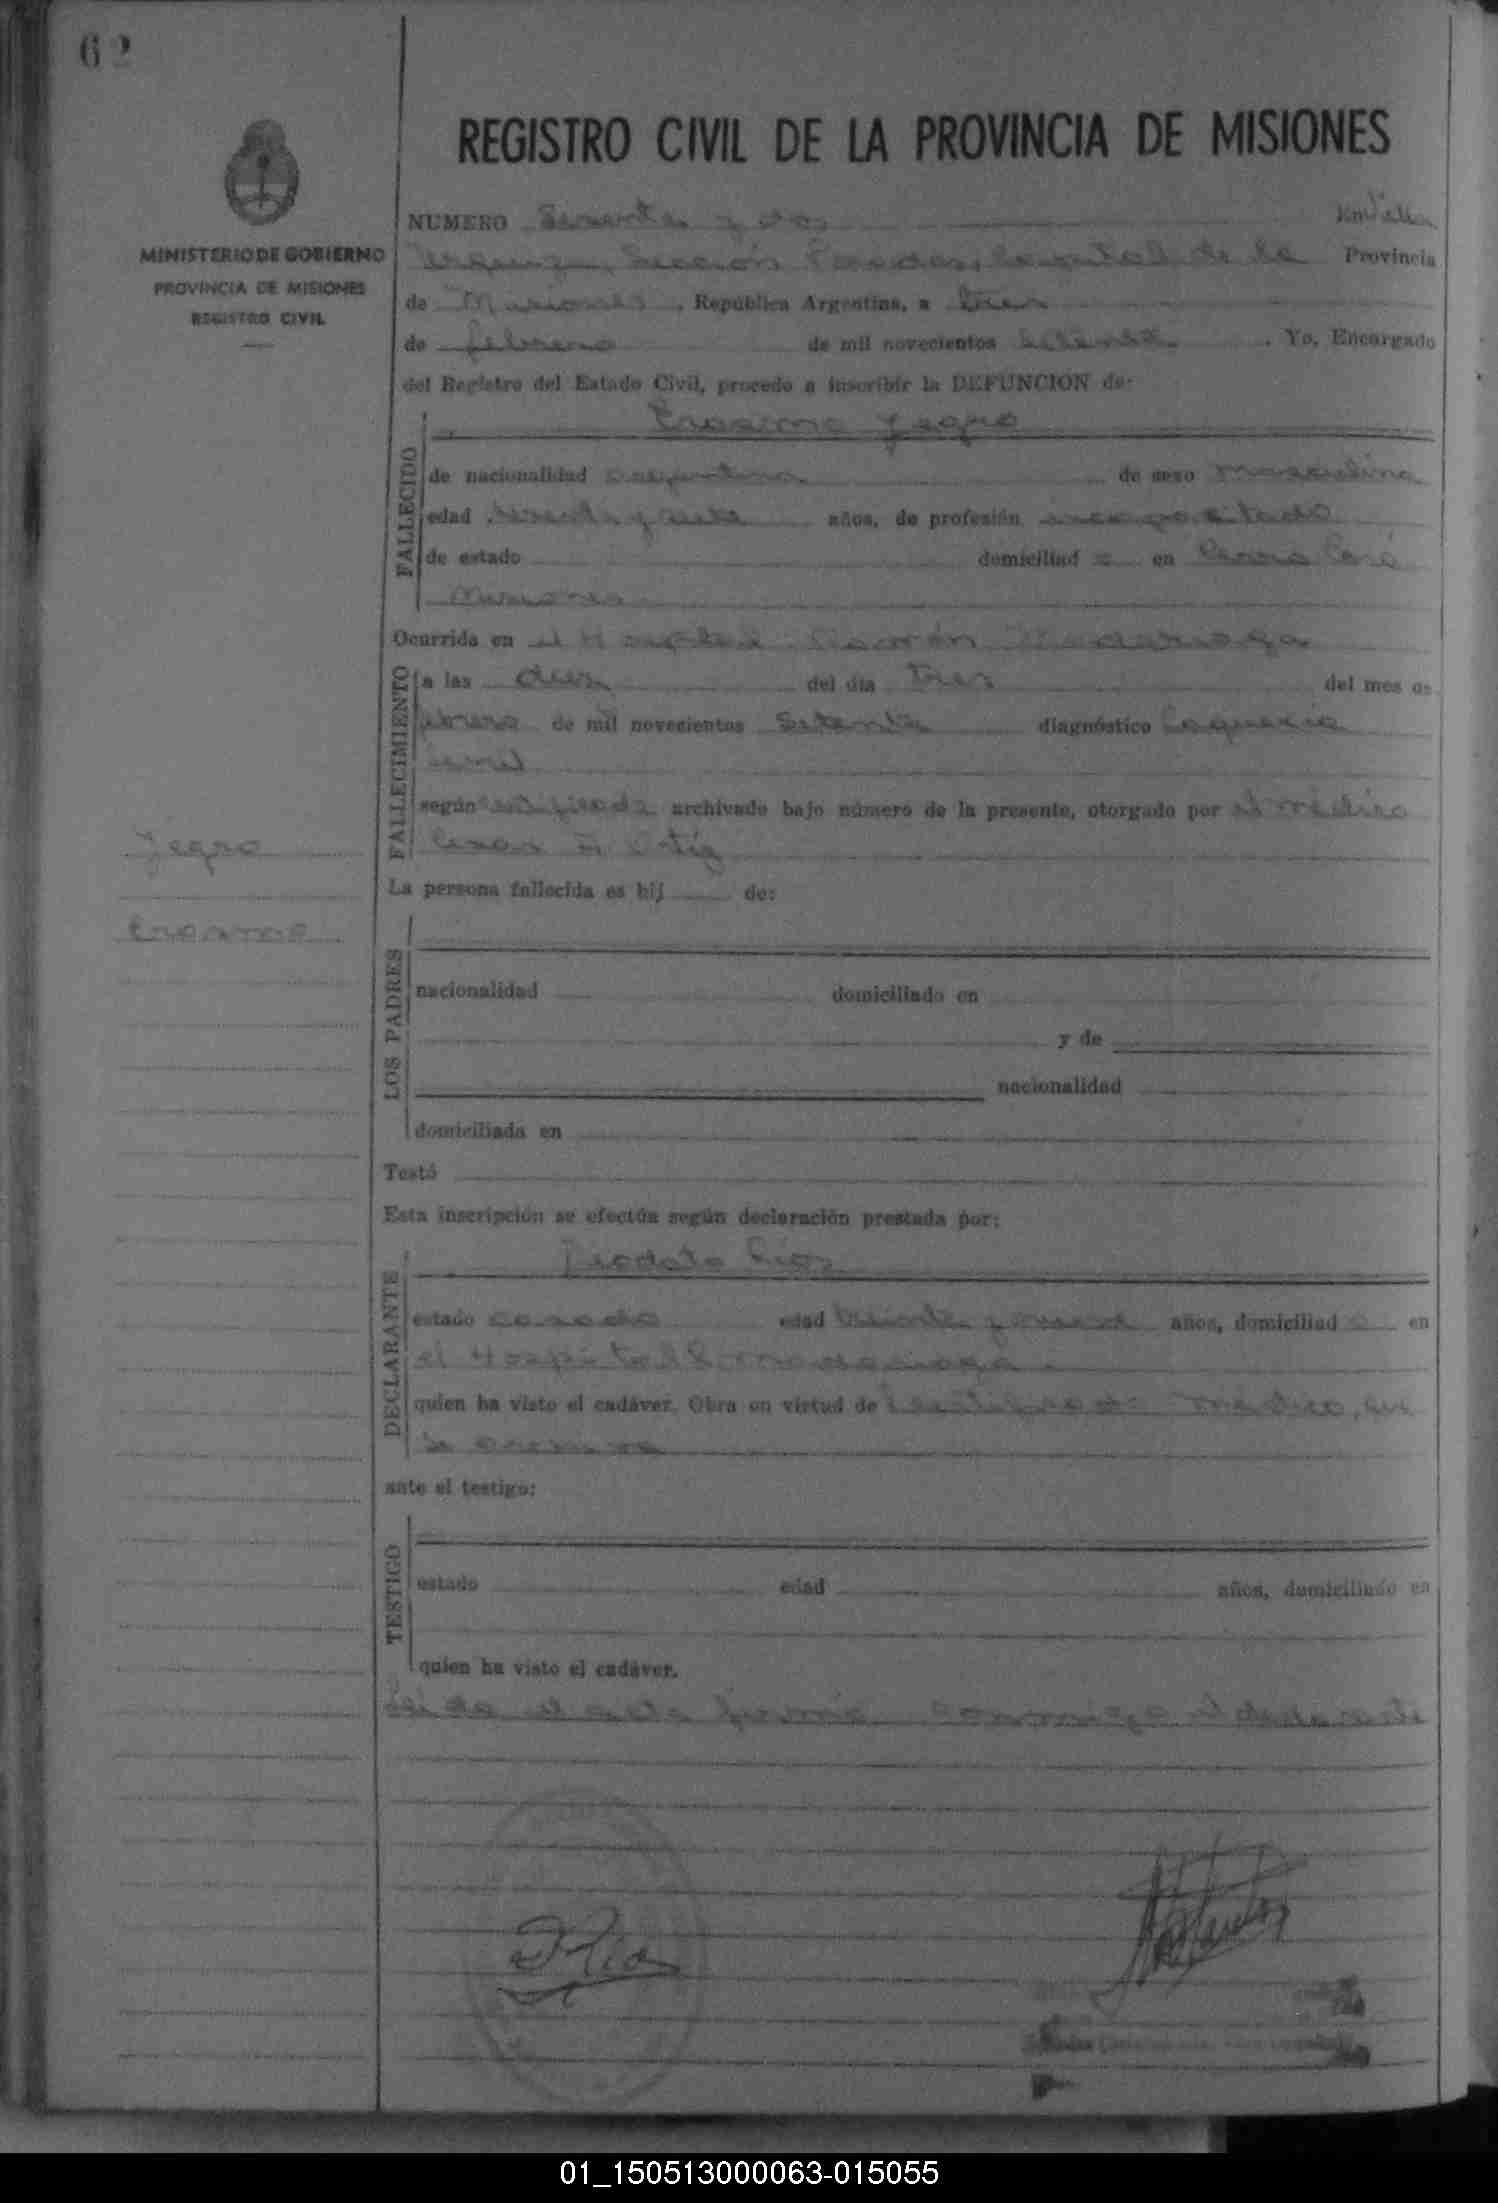 62
REGISTRO CIVIL DE LA PROVINCIA DE MISIONES
MINISTERIO DE GOBIERNO
PROVINCIA DE MISIONES
REGISTRO CIVIL
NUMERO Sesenta y dos En Villa
Urquiza, Sección Posadas, Capital de la Provincia
de Misiones, República Argentina, a tres
de febrero de mil novecientos setenta. Yo, Encargado
del Registro del Estado Civil, procedo a inscribir la DEFUNCION de:
Erasmo Yegro
FALLECIDO
de nacionalidad argentina de sexo masculino
edad sesenta y siete años, de profesión incapacitado
de estado domiciliad o en Cerro Corá
Misiones
Ocurrida en el Hospital Ramón Madariaga
FALLECIMIENTO
a las diez del día tres del mes de
febrero de mil novecientos setenta diagnóstico Caquexia
senil
según certificado archivado bajo número de la presente, otorgado por el médico
Cesar Ortiz
Yegro
Erasmo
La persona fallecida es hij de:
LOS PADRES
nacionalidad domiciliado en
y de
nacionalidad
domiciliada en
Testó
Esta inscripción se efectúa según declaración prestada por:
Deodato Ríos
DECLARANTE
estado casado edad treinta y años, domiciliad o en
el Hospital R. Madariaga
quien ha visto el cadáver. Obra en virtud de certificado médico, que
se archiva
ante el testigo:
TESTIGO
estado edad años, domiciliado en
quien ha visto el cadáver.
Leída el acta firma conmigo el declarante
DRios
01_150513000063-015055